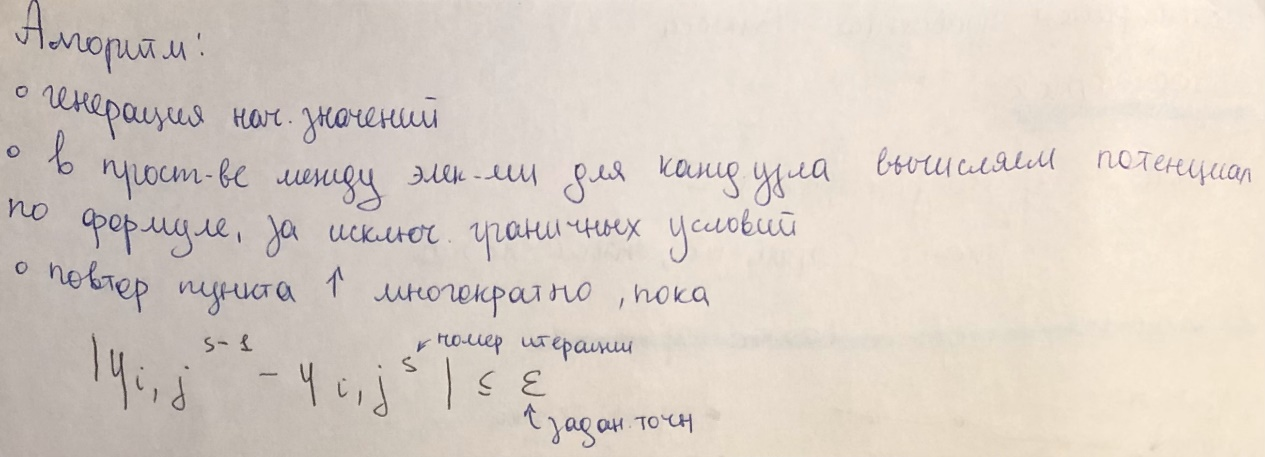 Алгоритм:
° генерация нач. значений
° в прост-ве между элек-ми для кажд. узла вычисляем потенциал
по формуле, за исключ. граничных условий
° повтор пункта ↑ многократно, пока
|φi,j^s-1 - φi,j^s| ≤ ε
номер итерации
↑ задан. точн